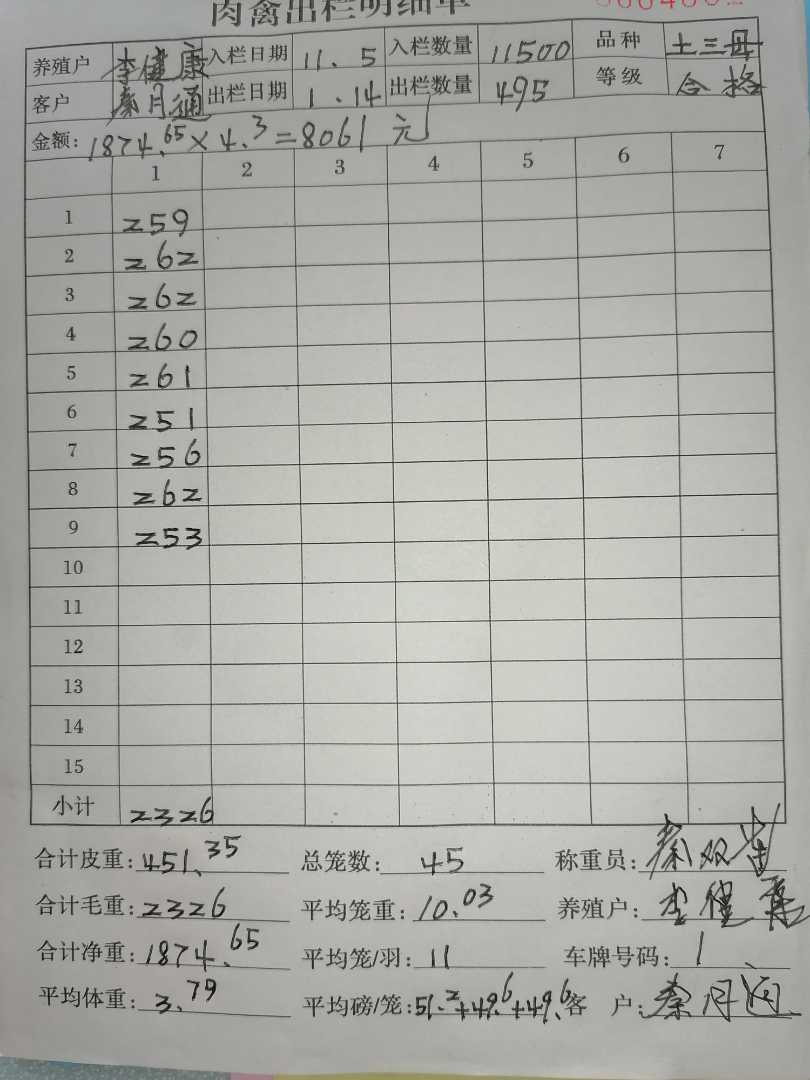 肉禽出栏明细单
养殖户 李健康 入栏日期 11.5 入栏数量 11500 品种 土三母
客户 秦月通 出栏日期 1.14 出栏数量 495 等级 合格
金额: 1874.65×4.3=8061元
1 2 3 4 5 6 7
1 259
2 262
3 262
4 260
5 261
6 251
7 256
8 262
9 253
10
11
12
13
14
15
小计 2326
合计皮重: 451.35 总笼数: 45 称重员:
合计毛重: 2326 平均笼重: 10.03 养殖户: 李健康
合计净重: 1874.65 平均笼/羽: 11 车牌号码: 1
平均体重: 3.79 平均磅/笼: 51.2+49.6+49.6 客 户: 秦月通